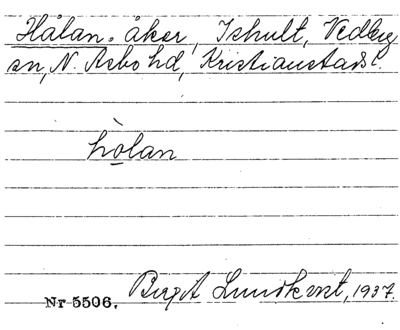 Hålan. åker, Ishult, Vedby
sn, N. Åsbo hd, Kristianstads l.
hòlan
Nr 5506. Birgit Lundkvist, 1937.